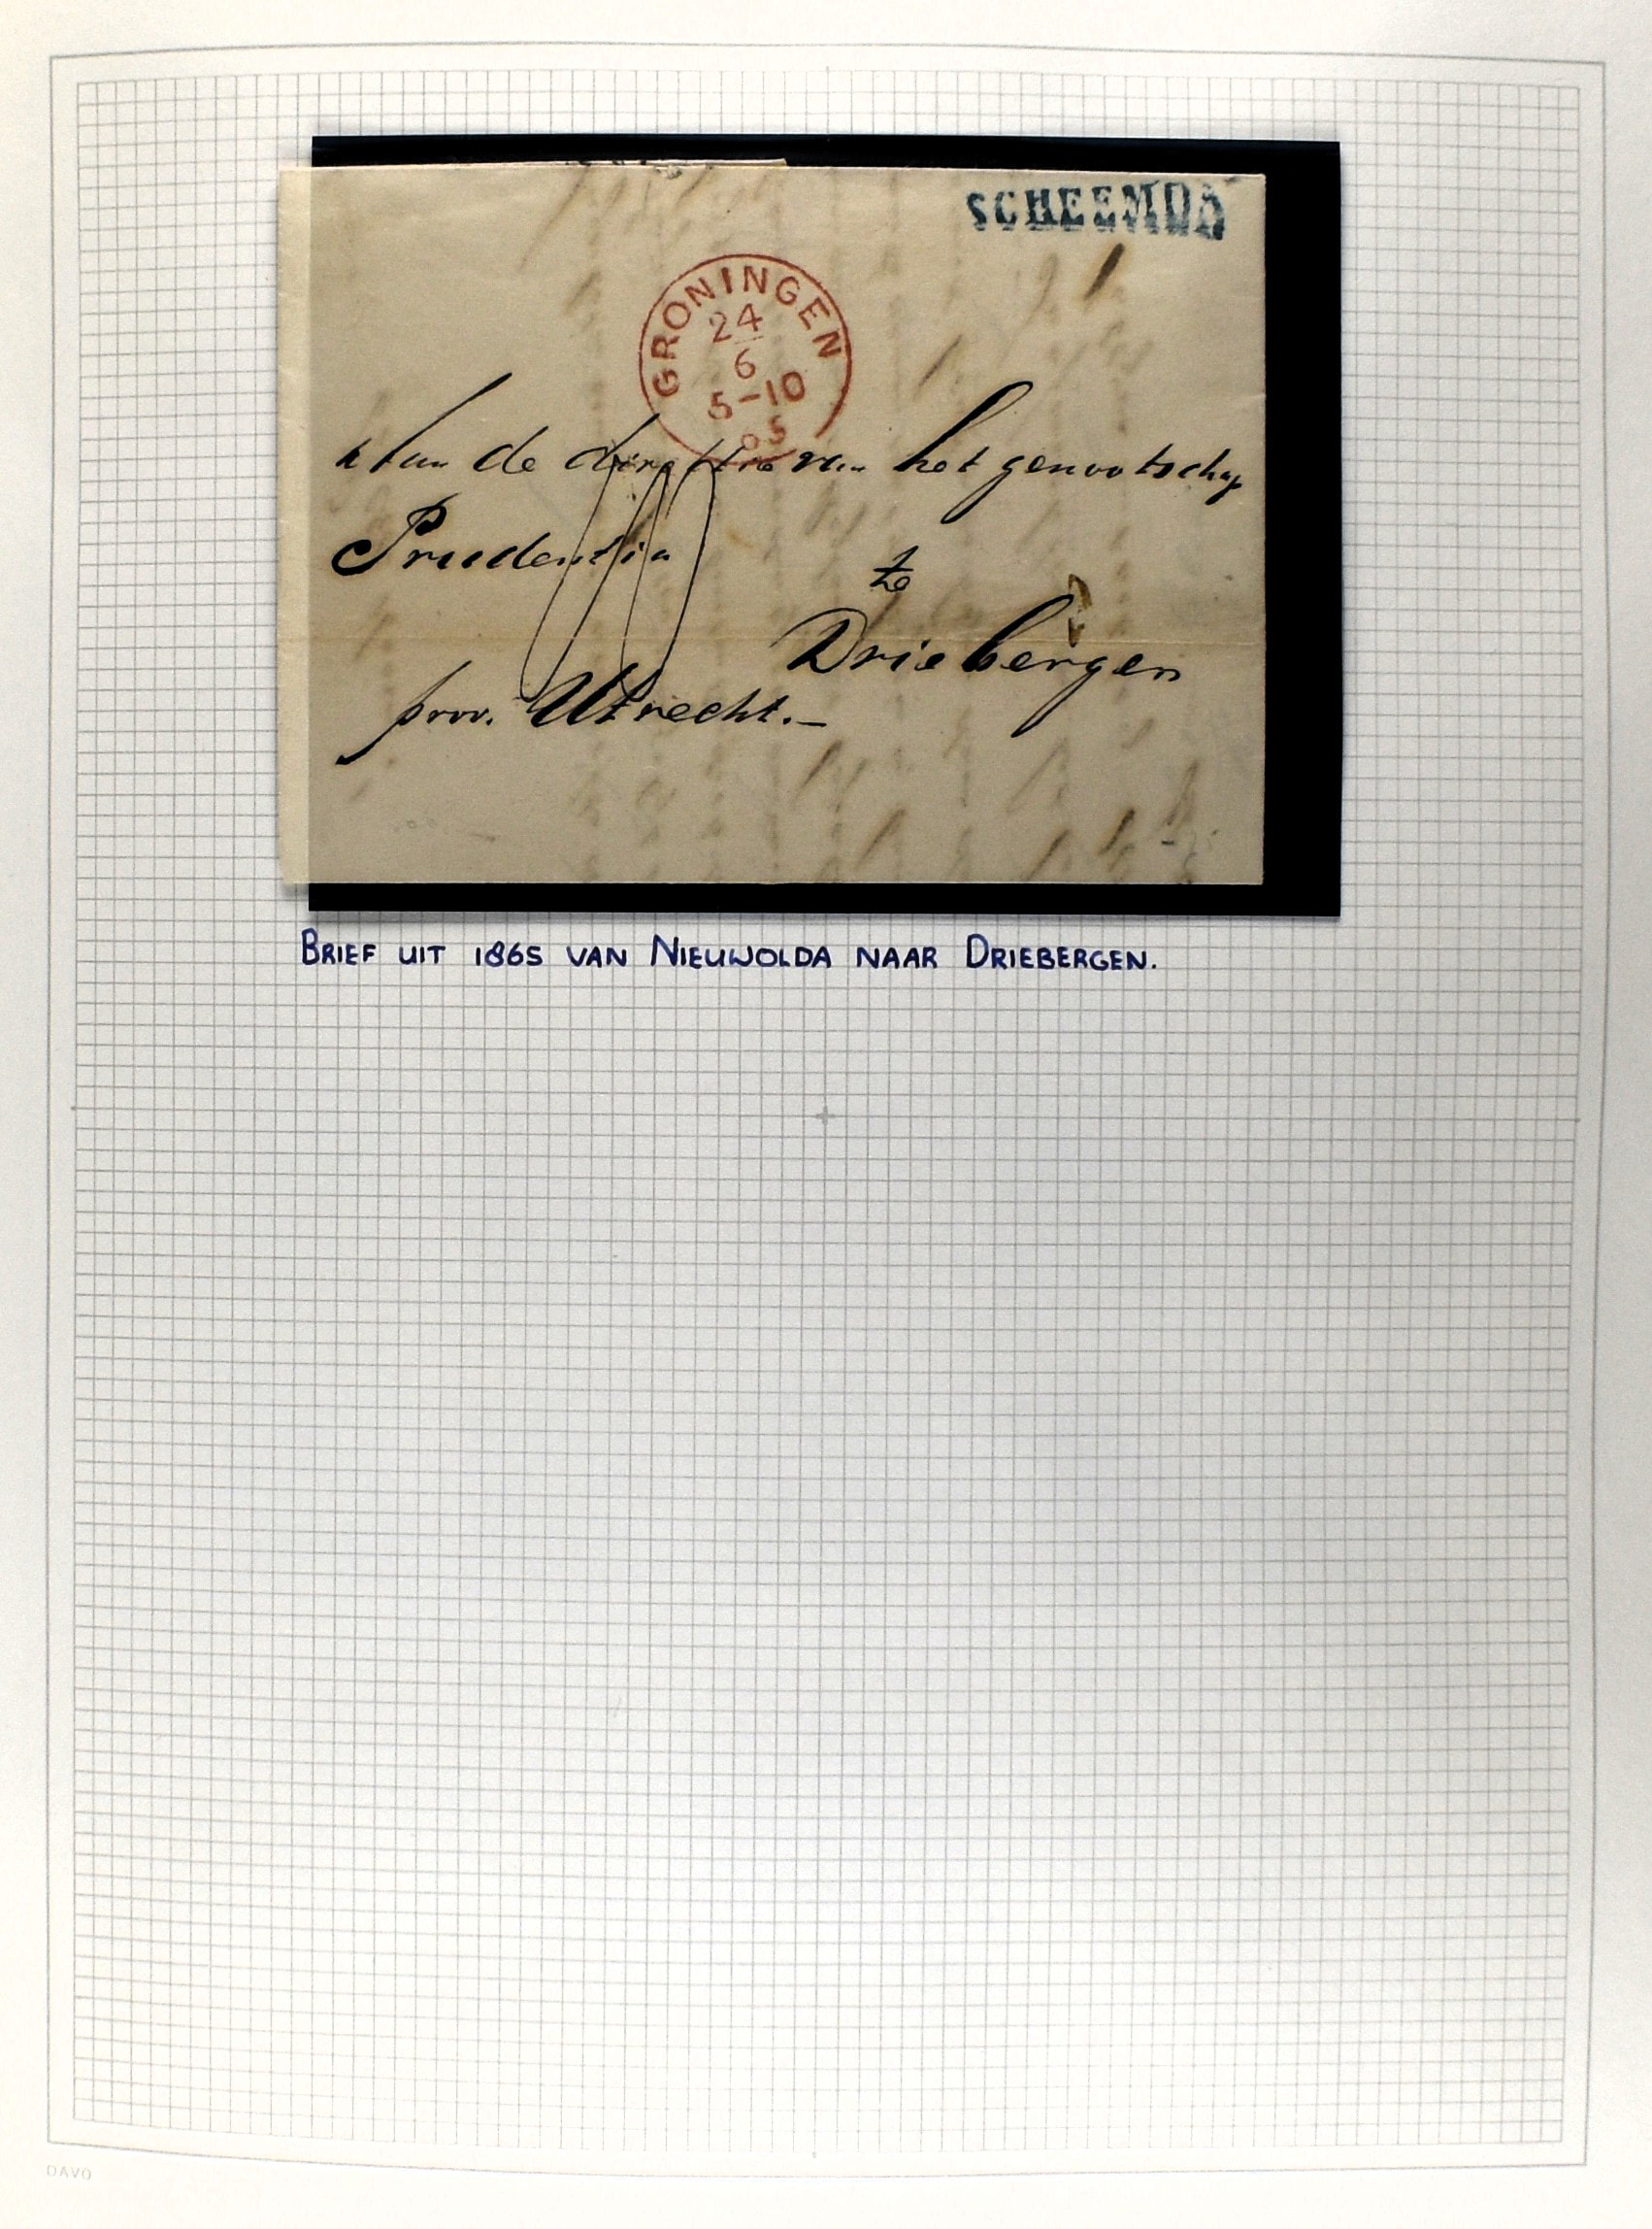 SCHEEMDA
GRONINGEN
24
6
5-10
65
Aan de directie van het genootschap
Prudentia
te
Driebergen
prov. Utrecht.-
BRIEF UIT 1865 VAN NIEUWOLDA NAAR DRIEBERGEN.
DAVO